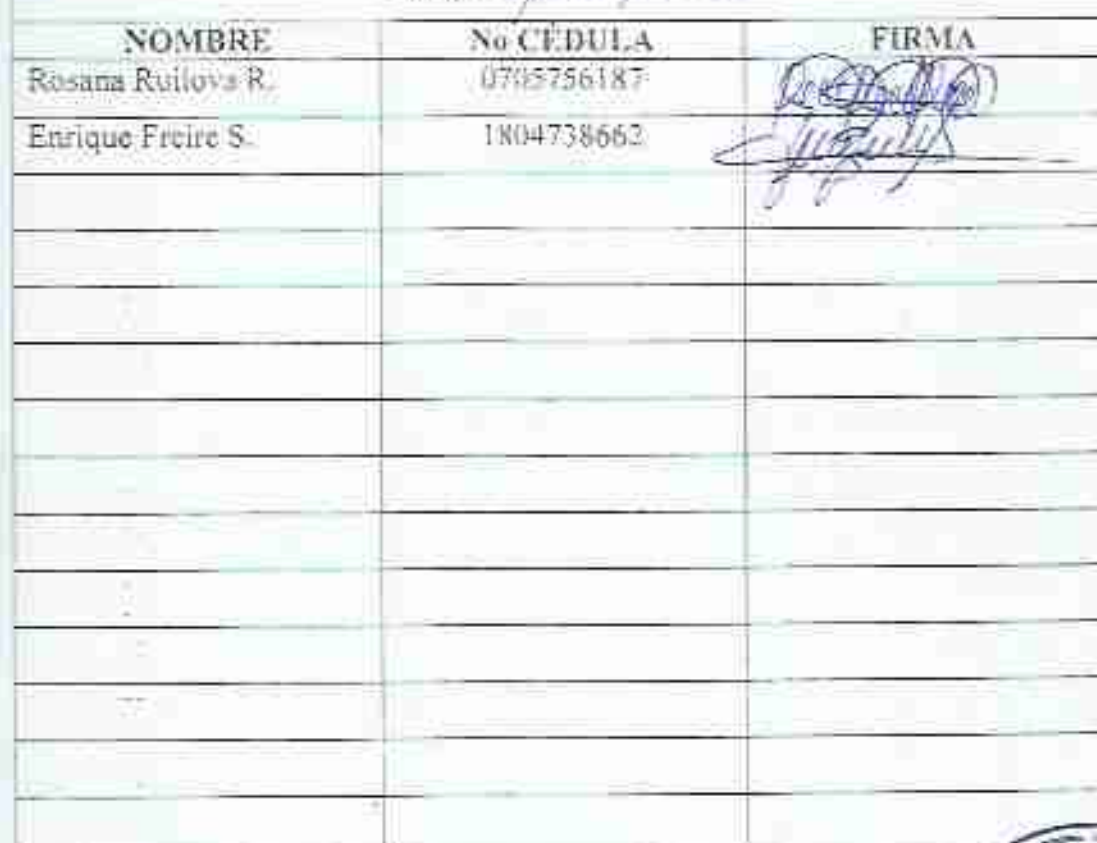 NOMBRE No CÉDULA FIRMA
Rosana Ruilova R. 0705756187
Enrique Freire S. 1804738662